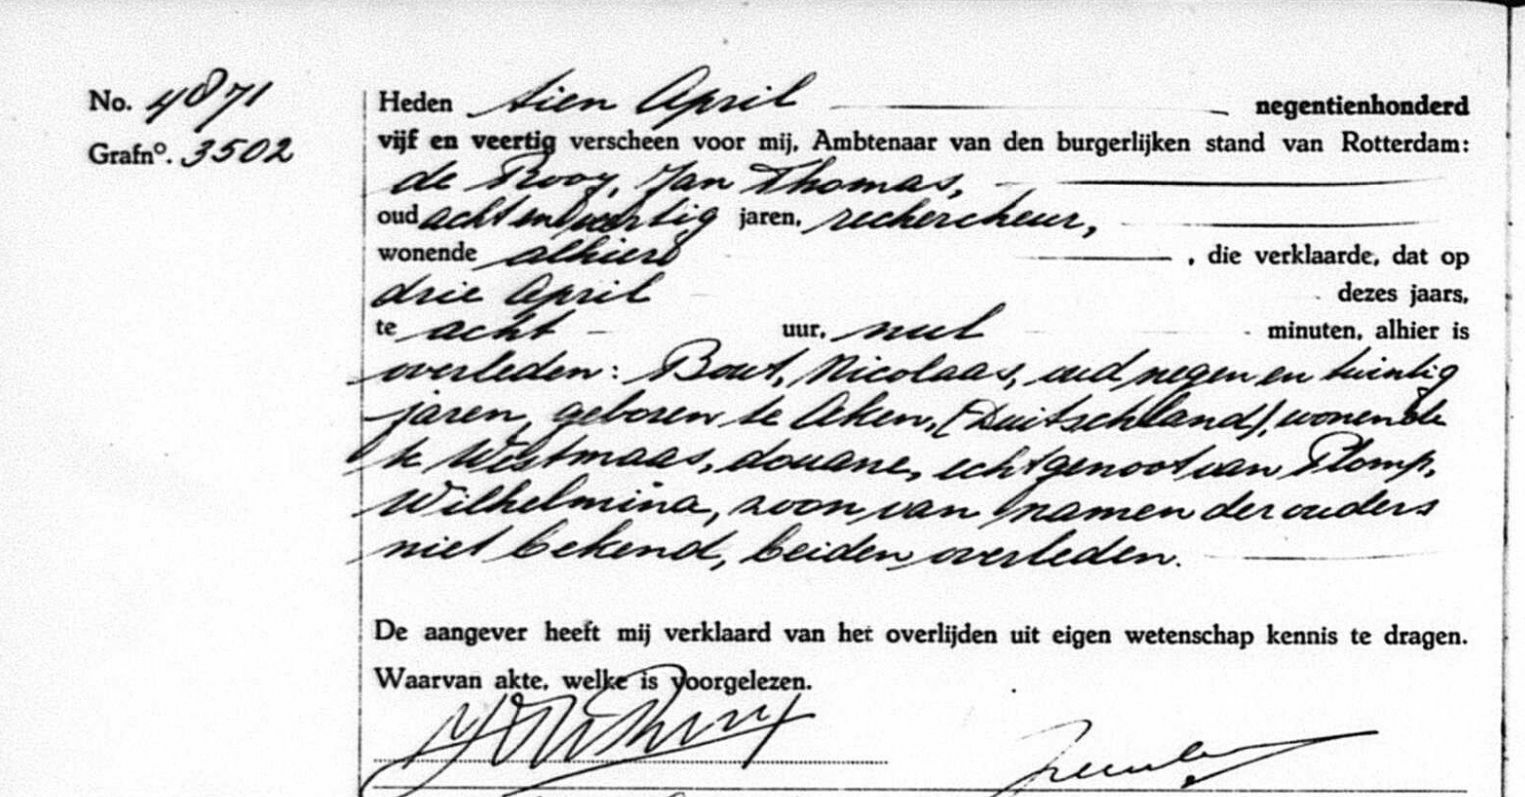 No. 4871
Grafn°. 3502
Heden tien April negentienhonderd
vijf en veertig verscheen voor mij, Ambtenaar van den burgerlijken stand van Rotterdam:
de Rooy, Jan Thomas,
oud acht en veertig jaren, rechercheur,
wonende alhier , die verklaarde, dat op
drie April dezes jaars,
te acht uur, nul minuten, alhier is
overleden: Bout, Nicolaas, oud negen en twintig
jaren, geboren te Aken, (Duitschland), wonende
te Westmaas, douane, echtgenoot van Plomp,
Wilhelmina, zoon van namen der ouders
niet bekend, beiden overleden.
De aangever heeft mij verklaard van het overlijden uit eigen wetenschap kennis te dragen.
Waarvan akte, welke is voorgelezen.